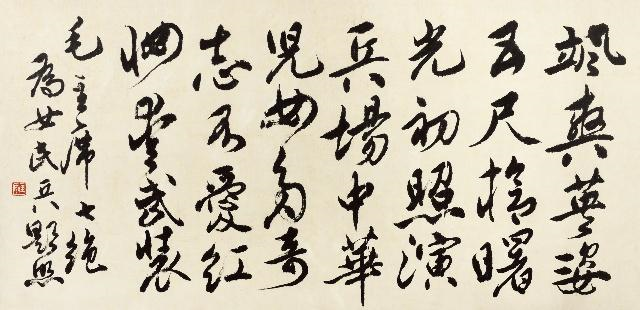 颯爽英姿
五尺槍曙
光初照演
兵場中華
兒女多奇
志不愛紅
妝愛武裝
毛主席七絕
為女民兵題照